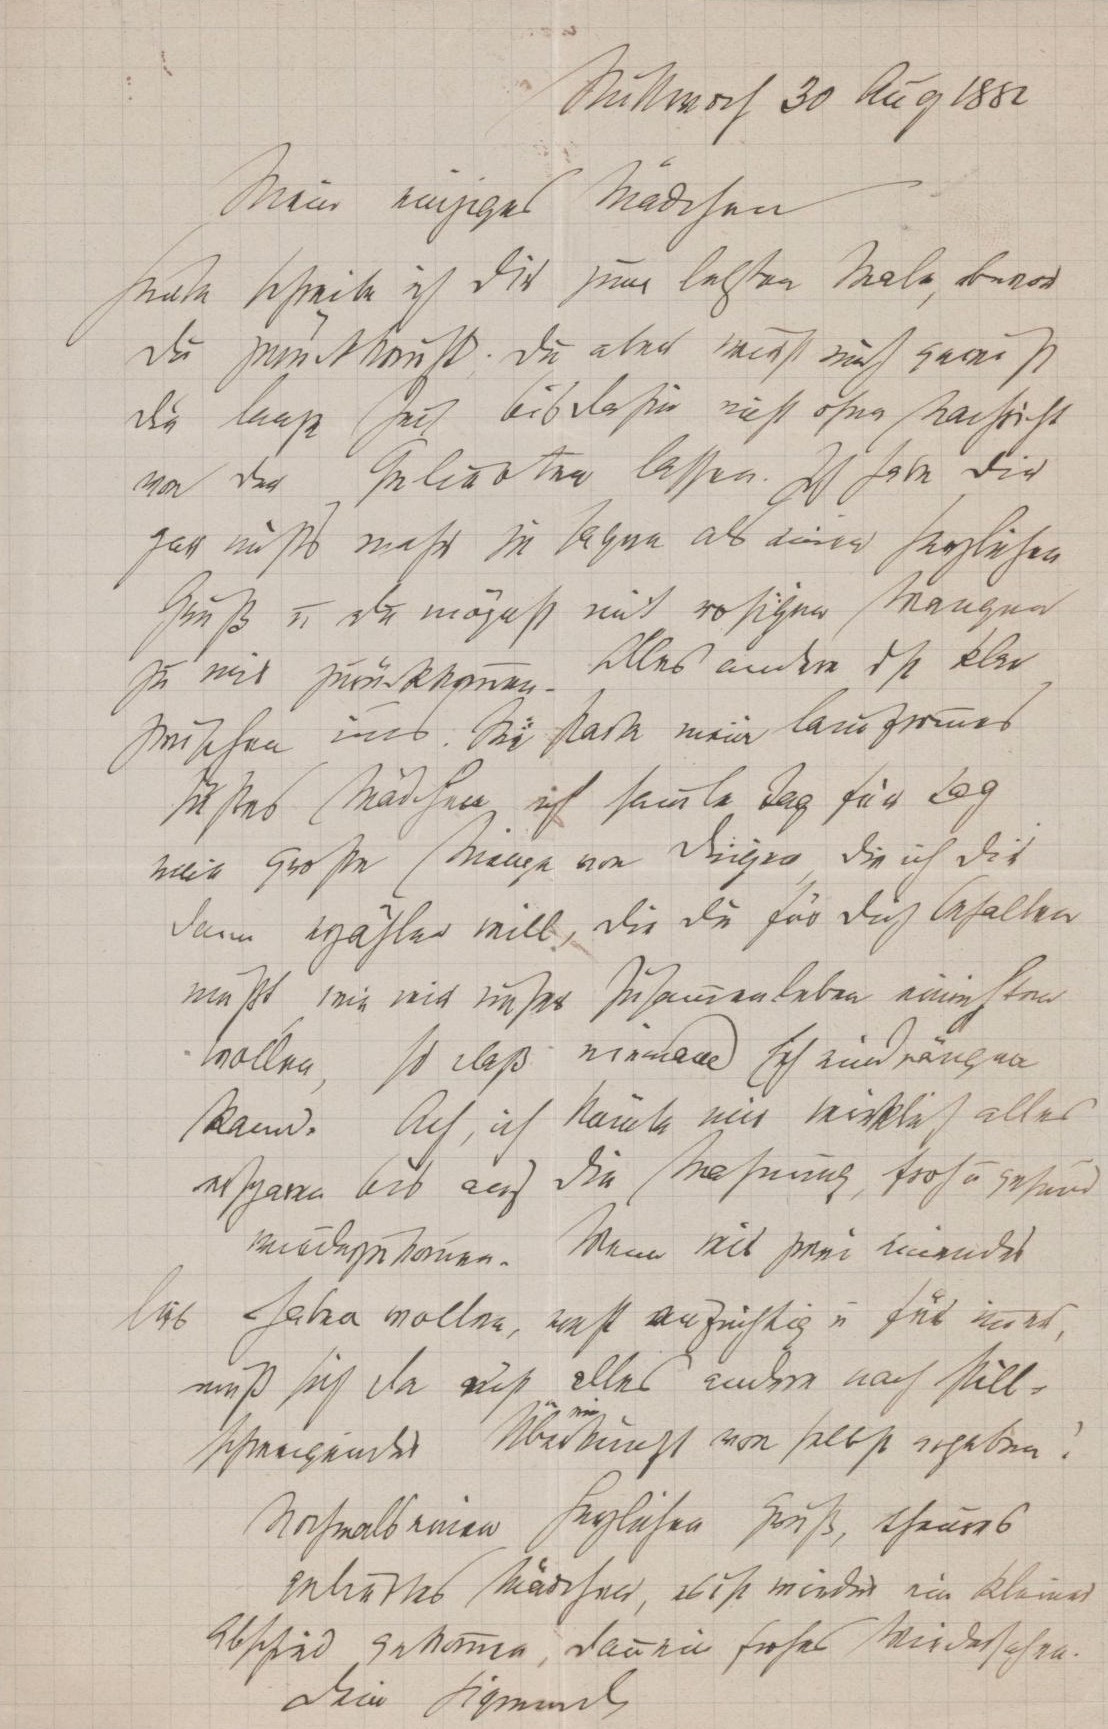 Mittwoch 30 Aug 1882
Mein einziges Mädchen
heute schreibe ich Dir zum letzten Male, bevor
Du zurückkommst. Du aber wirst mich gewiß
die lange Zeit bis dahin nicht ohne Nachricht
von der Geliebten lassen. Ich habe Dir
gar nichts mehr zu sagen als einen herzlichen
Gruß u Du mögest mit rosigen Wangen
zu mir zurückkommen. Alles andere ist klar
zwischen uns. Sei stark mein
süßes Mädchen, ich samle Tag für Tag
eine große Menge von Dingen, die ich Dir
dann erzählen will, die Du für Dich behalten
mußt, wie wir unser Zusammenleben einrichten
wollen, so daß niemand sich eindrängen
kann. Ach, ich könnte mir wirklich alles
ersparen bis auf die Mahnung, froh u gesund
wiederzukommen. Wenn wir zwei einander
lieb haben wollen, recht aufrichtig u für immer,
muß sich da nicht alles andere nach still-
schweigender Übereinkunft von selbst ergeben?
Nochmals einen herzlichen Gruß, theures
geliebtes Mädchen, es ist wieder ein kleiner
Abschied gekommen, dann ein frohes Wiedersehen.
Dein Sigmund